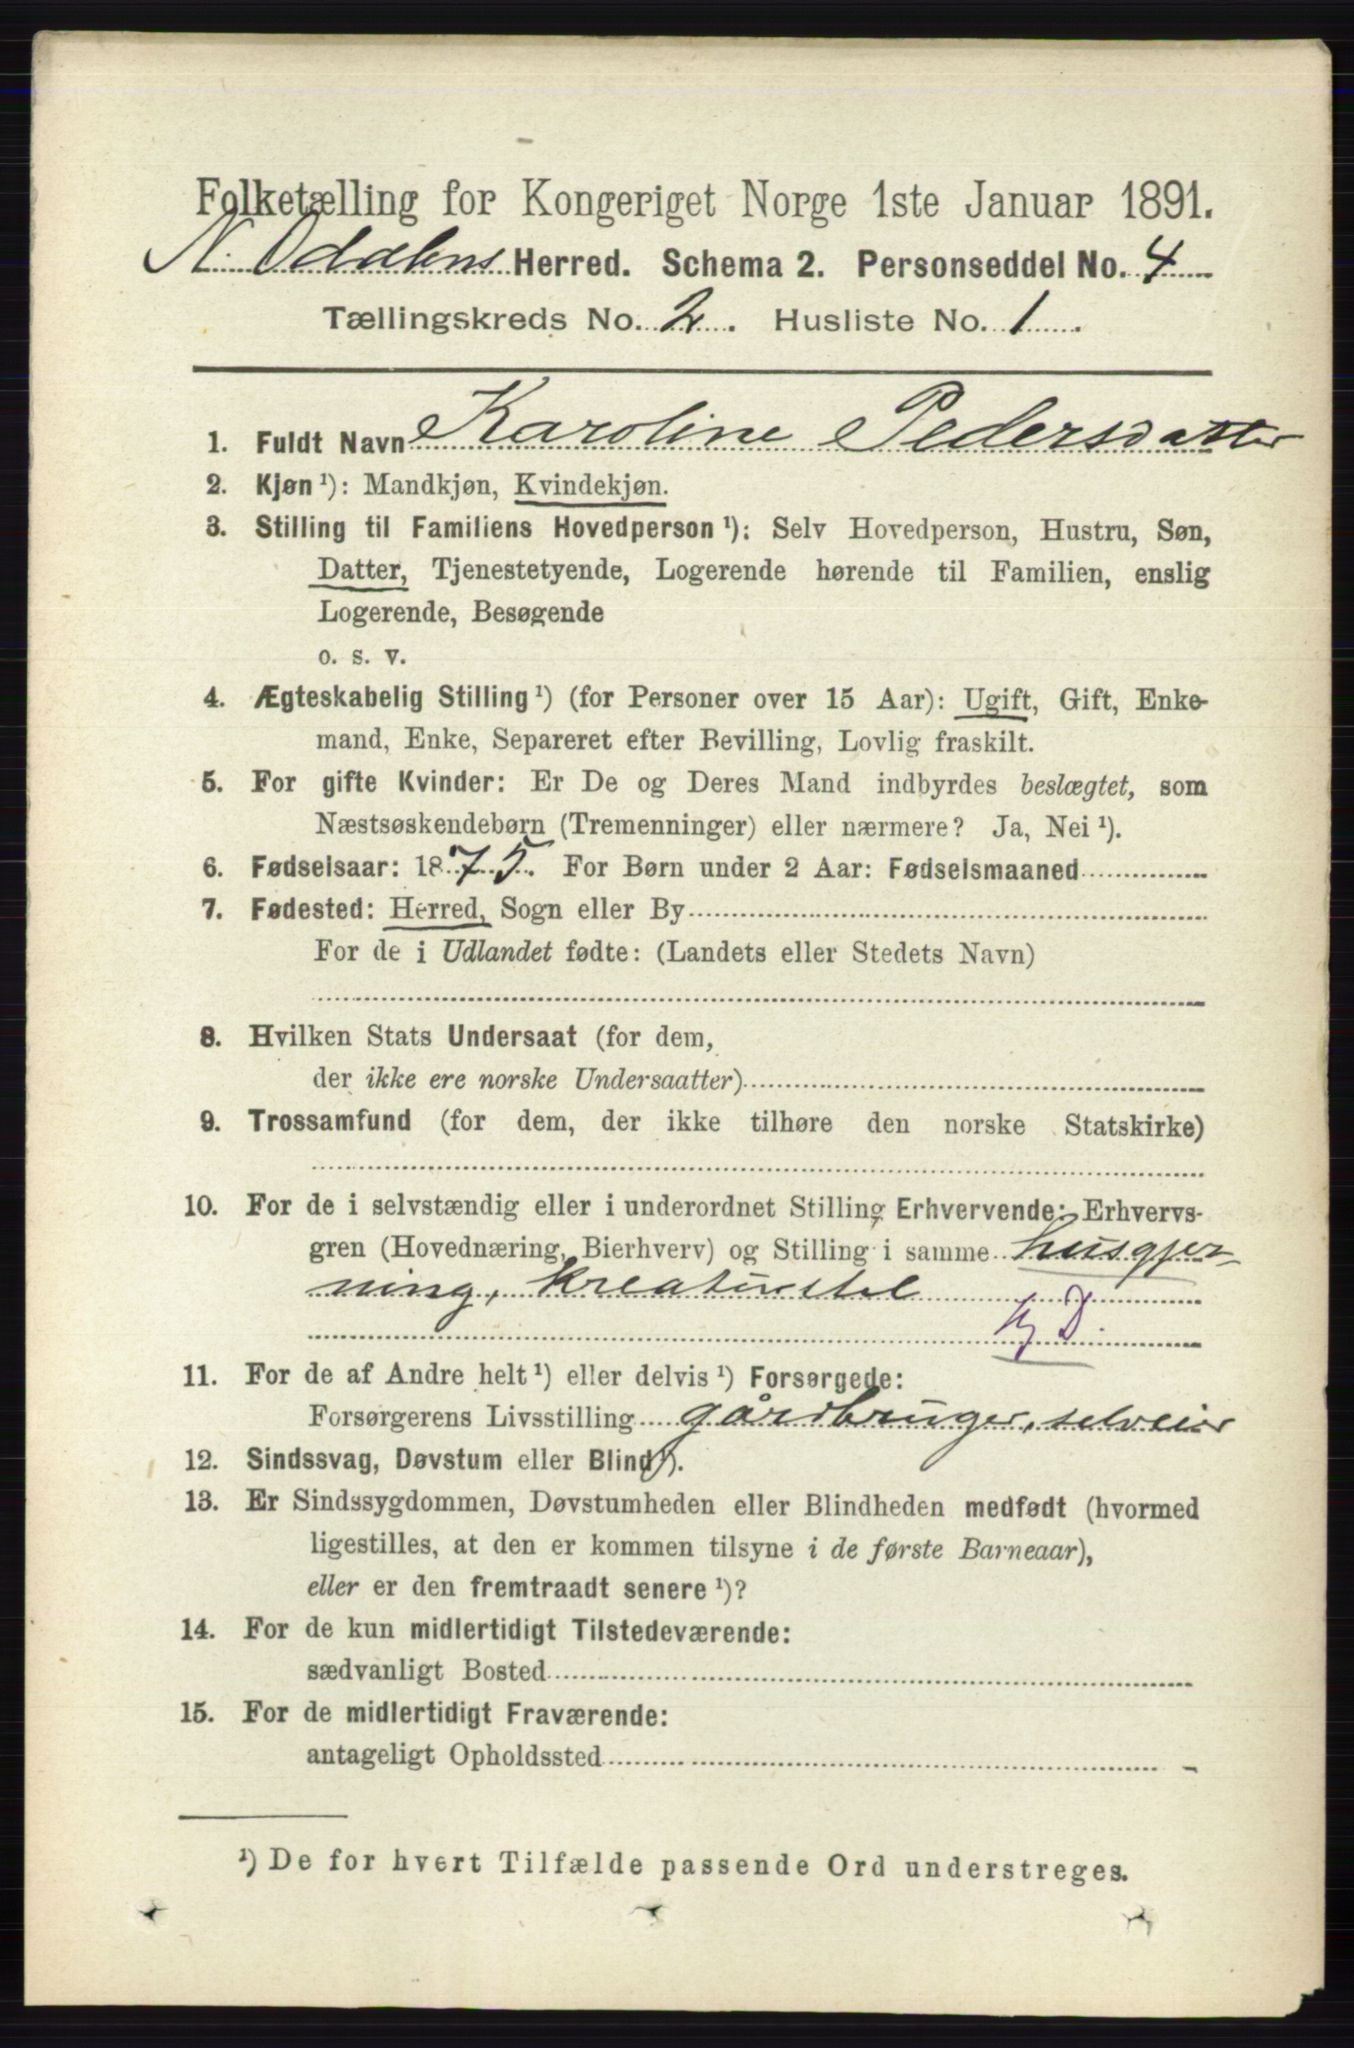 Folketælling for Kongeriget Norge 1ste Januar 1891.
N. Odalens Herred. Schema 2. Personseddel No. 4
Tællingskreds No. 2. Husliste No. 1.
1. Fuldt Navn Karoline Pedersdatter
2. Kjøn ¹): Mandkjøn, Kvindekjøn.
3. Stilling til Familiens Hovedperson ¹): Selv Hovedperson, Hustru, Søn,
Datter, Tjenestetyende, Logerende hørende til Familien, enslig
Logerende, Besøgende
o. s. v.
4. Ægteskabelig Stilling ¹) (for Personer over 15 Aar): Ugift, Gift, Enke-
mand, Enke, Separeret efter Bevilling, Lovlig fraskilt.
5. For gifte Kvinder: Er De og Deres Mand indbyrdes beslægtet, som
Næstsøskendebørn (Tremenninger) eller nærmere? Ja, Nei ¹).
6. Fødselsaar: 1875. For Børn under 2 Aar: Fødselsmaaned
7. Fødested: Herred, Sogn eller By
For de i Udlandet fødte: (Landets eller Stedets Navn)
8. Hvilken Stats Undersaat (for dem,
der ikke ere norske Undersaatter)
9. Trossamfund (for dem, der ikke tilhøre den norske Statskirke)
10. For de i selvstændig eller i underordnet Stilling Erhvervende: Erhvervs-
gren (Hovednæring, Bierhverv) og Stilling i samme husgjer-
ning, kreaturstel
D.
11. For de af Andre helt ¹) eller delvis ¹) Forsørgede:
Forsørgerens Livsstilling gårdbruger, selveier
12. Sindssvag, Døvstum eller Blind ¹).
13. Er Sindssygdommen, Døvstumheden eller Blindheden medfødt (hvormed
ligestilles, at den er kommen tilsyne i de første Barneaar),
eller er den fremtraadt senere ¹)?
14. For de kun midlertidigt Tilstedeværende:
sædvanligt Bosted
15. For de midlertidigt Fraværende:
antageligt Opholdssted
¹) De for hvert Tilfælde passende Ord understreges.